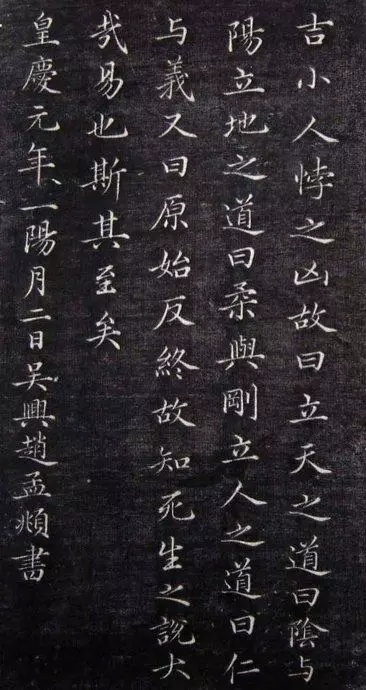 吉小人悖之凶故曰立天之道曰陰与
陽立地之道曰柔與剛立人之道曰仁
与義又曰原始反終故知死生之說大
哉易也斯其至矣
皇慶元年一陽月二日吳興趙孟頫書